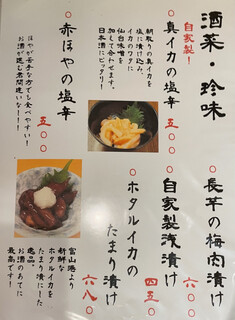 酒菜・珍味
自家製!
○真イカの塩辛 五〇〇
朝取りの真イカを
塩に漬け込み、
イカのワタに
仙台味噌を
加えて合わせます。
日本酒にピッタリ!
○赤ほやの塩辛 五〇〇
ほやが苦手な方でも食べやすい!
お酒が進む者間違いなー!!
○長芋の梅肉漬け 六〇〇
○自家製浅漬け 四五〇
○ホタルイカの
たまり漬け 六八〇
富山港より
新鮮な
ホタルイカを
たまり漬にした
逸品。
お酒のあてに
最高です!